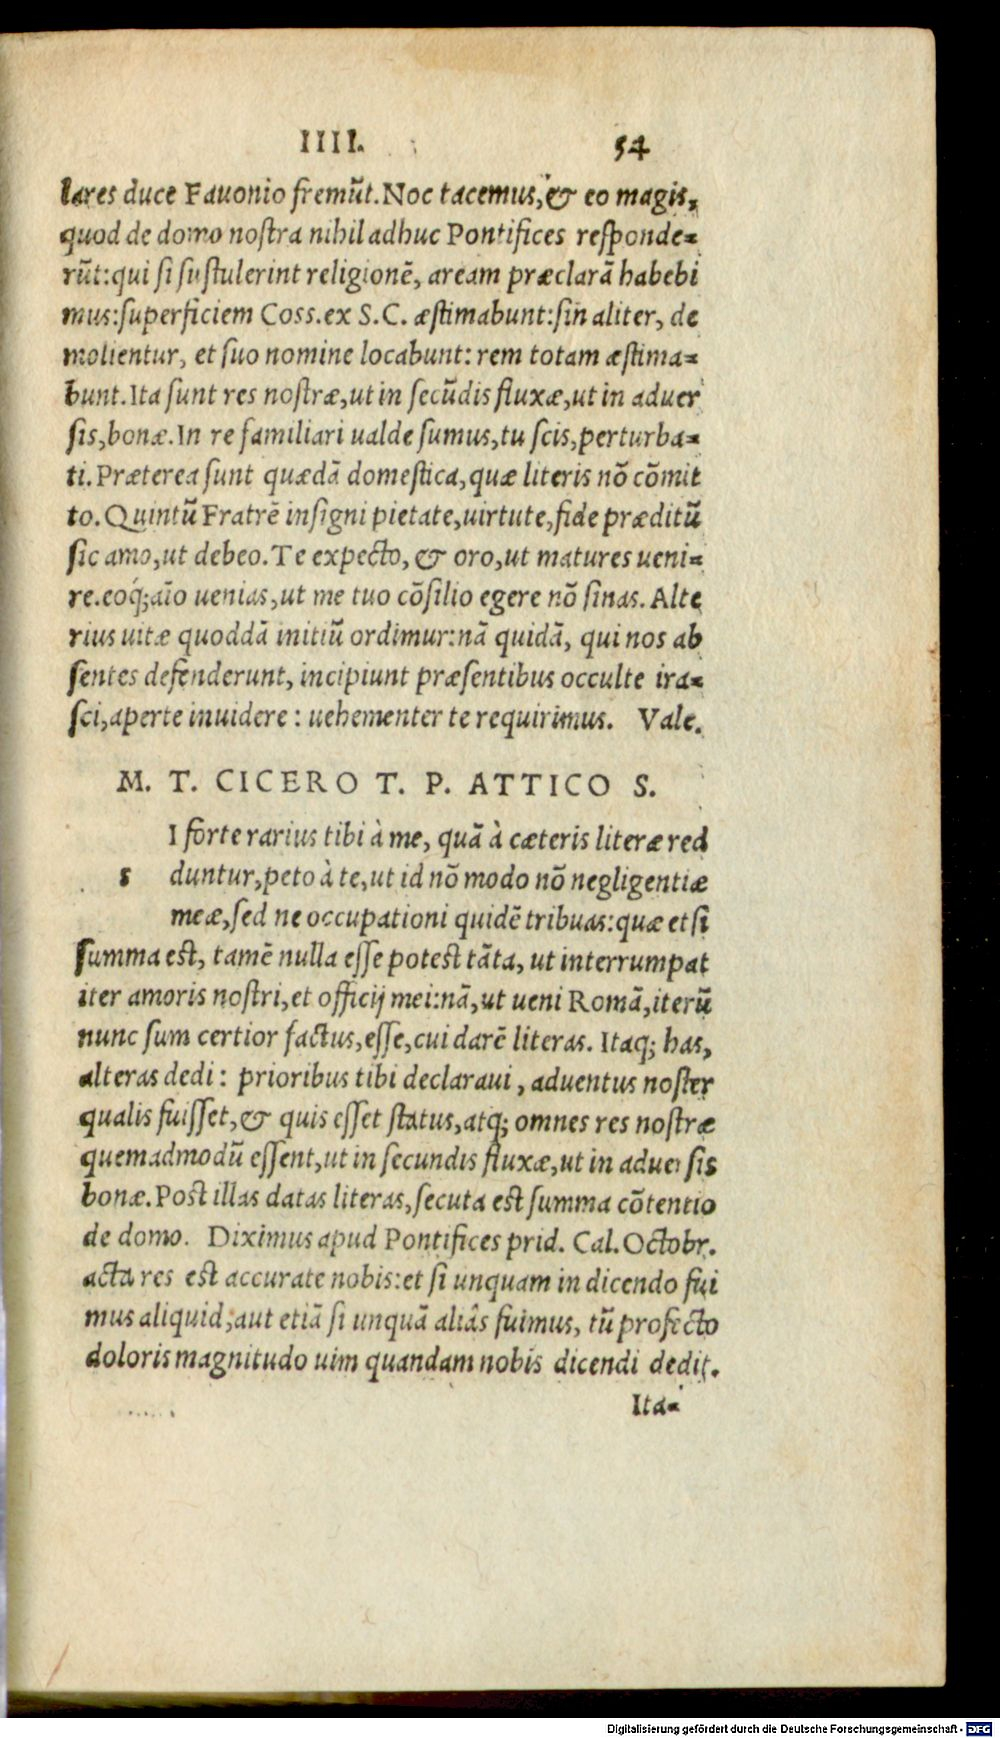 IIII. 54
lares duce Fauonio fremũt. Noc tacemus, & eo magis,
quod de domo nostra nihil adhuc Pontifices responde-
rũt: qui si sustulerint religionẽ, aream præclarã habebi
mus: superficiem Coss. ex S. C. æstimabunt: sin aliter, de
molientur, et suo nomine locabunt: rem totam æstima-
bunt. Ita sunt res nostræ, ut in secũdis fluxæ, ut in aduer
sis, bonæ. In re familiari ualde sumus, tu scis, perturba-
ti. Præterea sunt quædã domestica, quæ literis nõ cõmit
to. Quintũ Fratrẽ insigni pietate, uirtute, fide præditũ
sic amo, ut debeo. Te expecto, & oro, ut matures ueni-
re. eoq́; aĩo uenias, ut me tuo cõsilio egere nõ sinas. Alte
rius uitæ quoddã initiũ ordimur: nã quidã, qui nos ab
sentes defenderunt, incipiunt præsentibus occulte ira-
sci, aperte inuidere: uehementer te requirimus. Vale.
M. T. CICERO T. P. ATTICO S.
I forte rarius tibi à me, quã à cæteris literæ red
s duntur, peto à te, ut id nõ modo nõ negligentiæ
meæ, sed ne occupationi quidẽ tribuas: quæ et si
summa est, tamẽ nulla esse potest tãta, ut interrumpat
iter amoris nostri, et officij mei: nã, ut ueni Romã, iterũ
nunc sum certior factus, esse, cui darẽ literas. Itaq; has,
alteras dedi: prioribus tibi declaraui, aduentus noster
qualis fuisset, & quis esset status, atq; omnes res nostræ
quemadmodũ essent, ut in secundis fluxæ, ut in aduersis
bonæ. Post illas datas literas, secuta est summa cõtentio
de domo. Diximus apud Pontifices prid. Cal. Octobr.
acta res est accurate nobis: et si unquam in dicendo fui
mus aliquid; aut etiã si unquã aliâs fuimus, tũ profecto
doloris magnitudo uim quandam nobis dicendi dedit.
Ita-
Digitalisierung gefördert durch die Deutsche Forschungsgemeinschaft - DFG